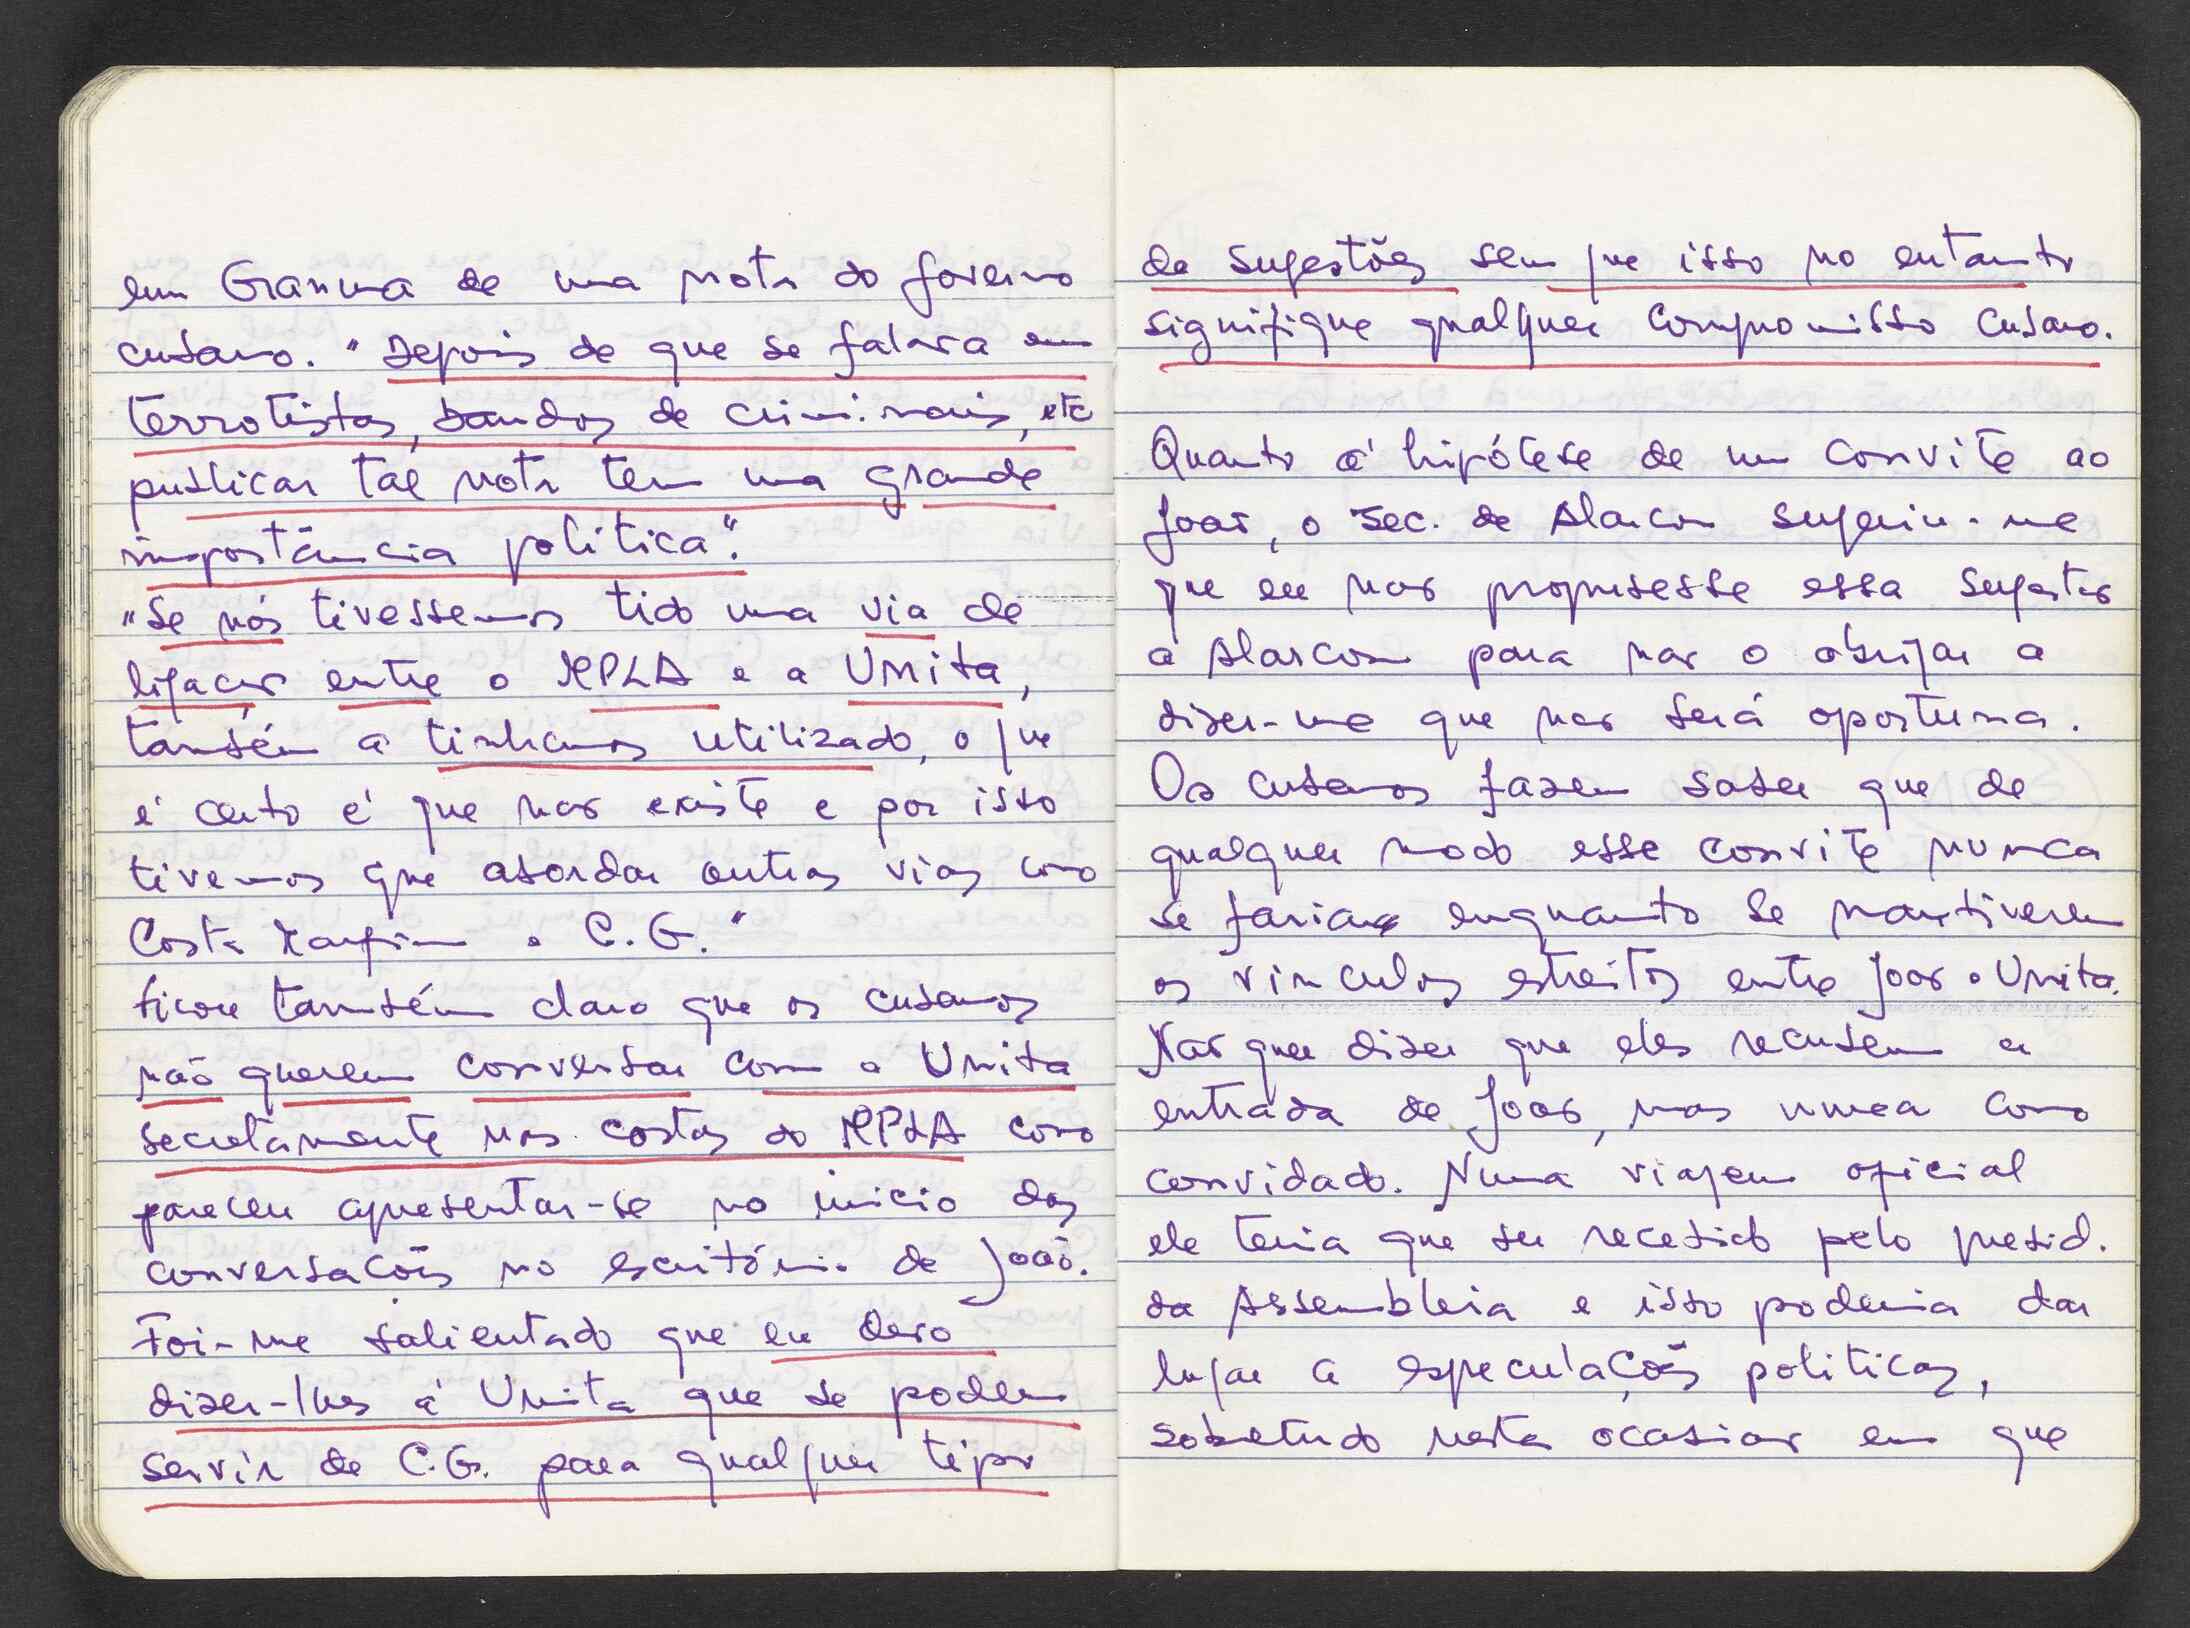 em Granma de uma nota do governo
cubano. "Depois de que se falara em
terrotistas, bandos de criminais, etc
publicar tal nota tem uma grande
importância política".
"Se nós tivessemos tido uma via de
ligação entre o MPLA e a Unita,
também a tinhamos utilizado, o que
é certo é que não existe e por isso
tivemos que abordar outras vias como
Costa Martim e C.G."
Ficou também claro que os cubanos
não querem conversar com a Unita
secretamente nas costas do MPLA como
pareceu apresentar-se no inicio das
conversações no escritório de João.
Foi-me salientado que eu devo
dizer-lhes á Unita que se podem
servir de C.G. para qualquer tipo
de sugestões sem que isso no entanto
signifique qualquer compromisso cubano.
Quanto á hipótese de um convite ao
João, o sec. de Alarcon sugeriu-me
que eu não propusesse essa sugestão
a Alarcon para não o obrigar a
dizer-me que não será oportuna.
Os cubanos fazem saber que de
qualquer modo esse convite nunca
se faria enquanto se mantiverem
os vinculos estreitos entre João e Unita.
Não quer dizer que eles recusem a
entrada de João, mas nunca como
convidado. Numa viagem oficial
ele teria que ser recebido pelo presid.
da Assembleia e isso poderia dar
lugar a especulações politicas,
sobretudo nesta ocasião em que